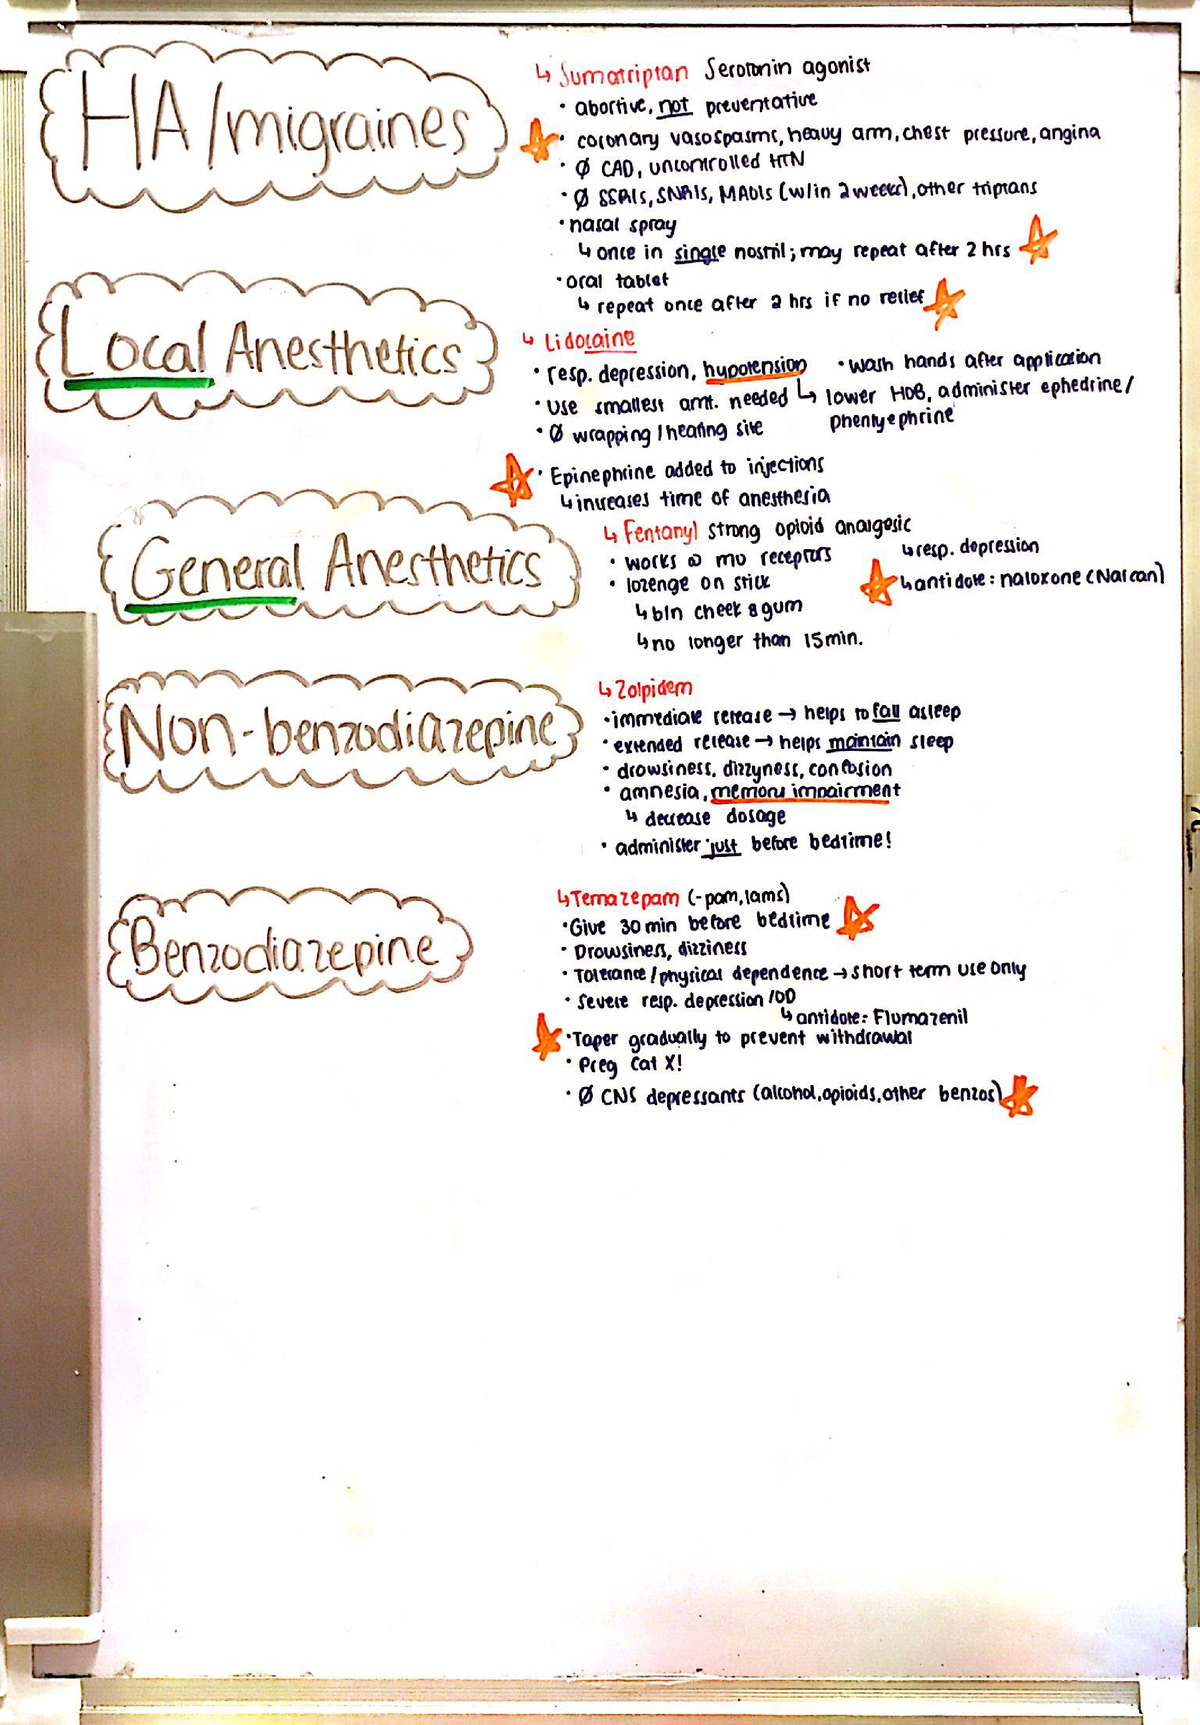 HA/migraines
↳ Sumatriptan Serotonin agonist
• abortive, not preventative
• coronary vasospasms, heavy arm, chest pressure, angina
• Ø CAD, uncontrolled HTN
• Ø SSRIs, SNRIs, MAOIs (w/in 2 weeks), other triptans
• nasal spray
↳ once in single nostril; may repeat after 2 hrs
• oral tablet
↳ repeat once after 2 hrs if no relief
Local Anesthetics
↳ Lidocaine
• resp. depression, hypotension • wash hands after application
• Use smallest amt. needed ↳ lower HOB, administer ephedrine/
phenlyephrine
• Ø wrapping/heating site
• Epinephrine added to injections
↳ increases time of anesthesia
General Anesthetics
↳ Fentanyl strong opioid analgesic
• works @ mu receptors ↳ resp. depression
• lozenge on stick ↳ antidote: naloxone (Narcan)
↳ btn cheek & gum
↳ no longer than 15 min.
Non-benzodiazepine
↳ Zolpidem
• immediate release → helps to fall asleep
• extended release → helps maintain sleep
• drowsiness, dizzyness, confusion
• amnesia, memory impairment
↳ decrease dosage
• administer just before bedtime!
Benzodiazepine
↳ Temazepam (-pam, lams)
• Give 30 min before bedtime
• Drowsiness, dizziness
• Tolerance/physical dependence → short term use only
• Severe resp. depression/OD
↳ antidote: Flumazenil
• Taper gradually to prevent withdrawal
• Preg Cat X!
• Ø CNS depressants (alcohol, opioids, other benzos)